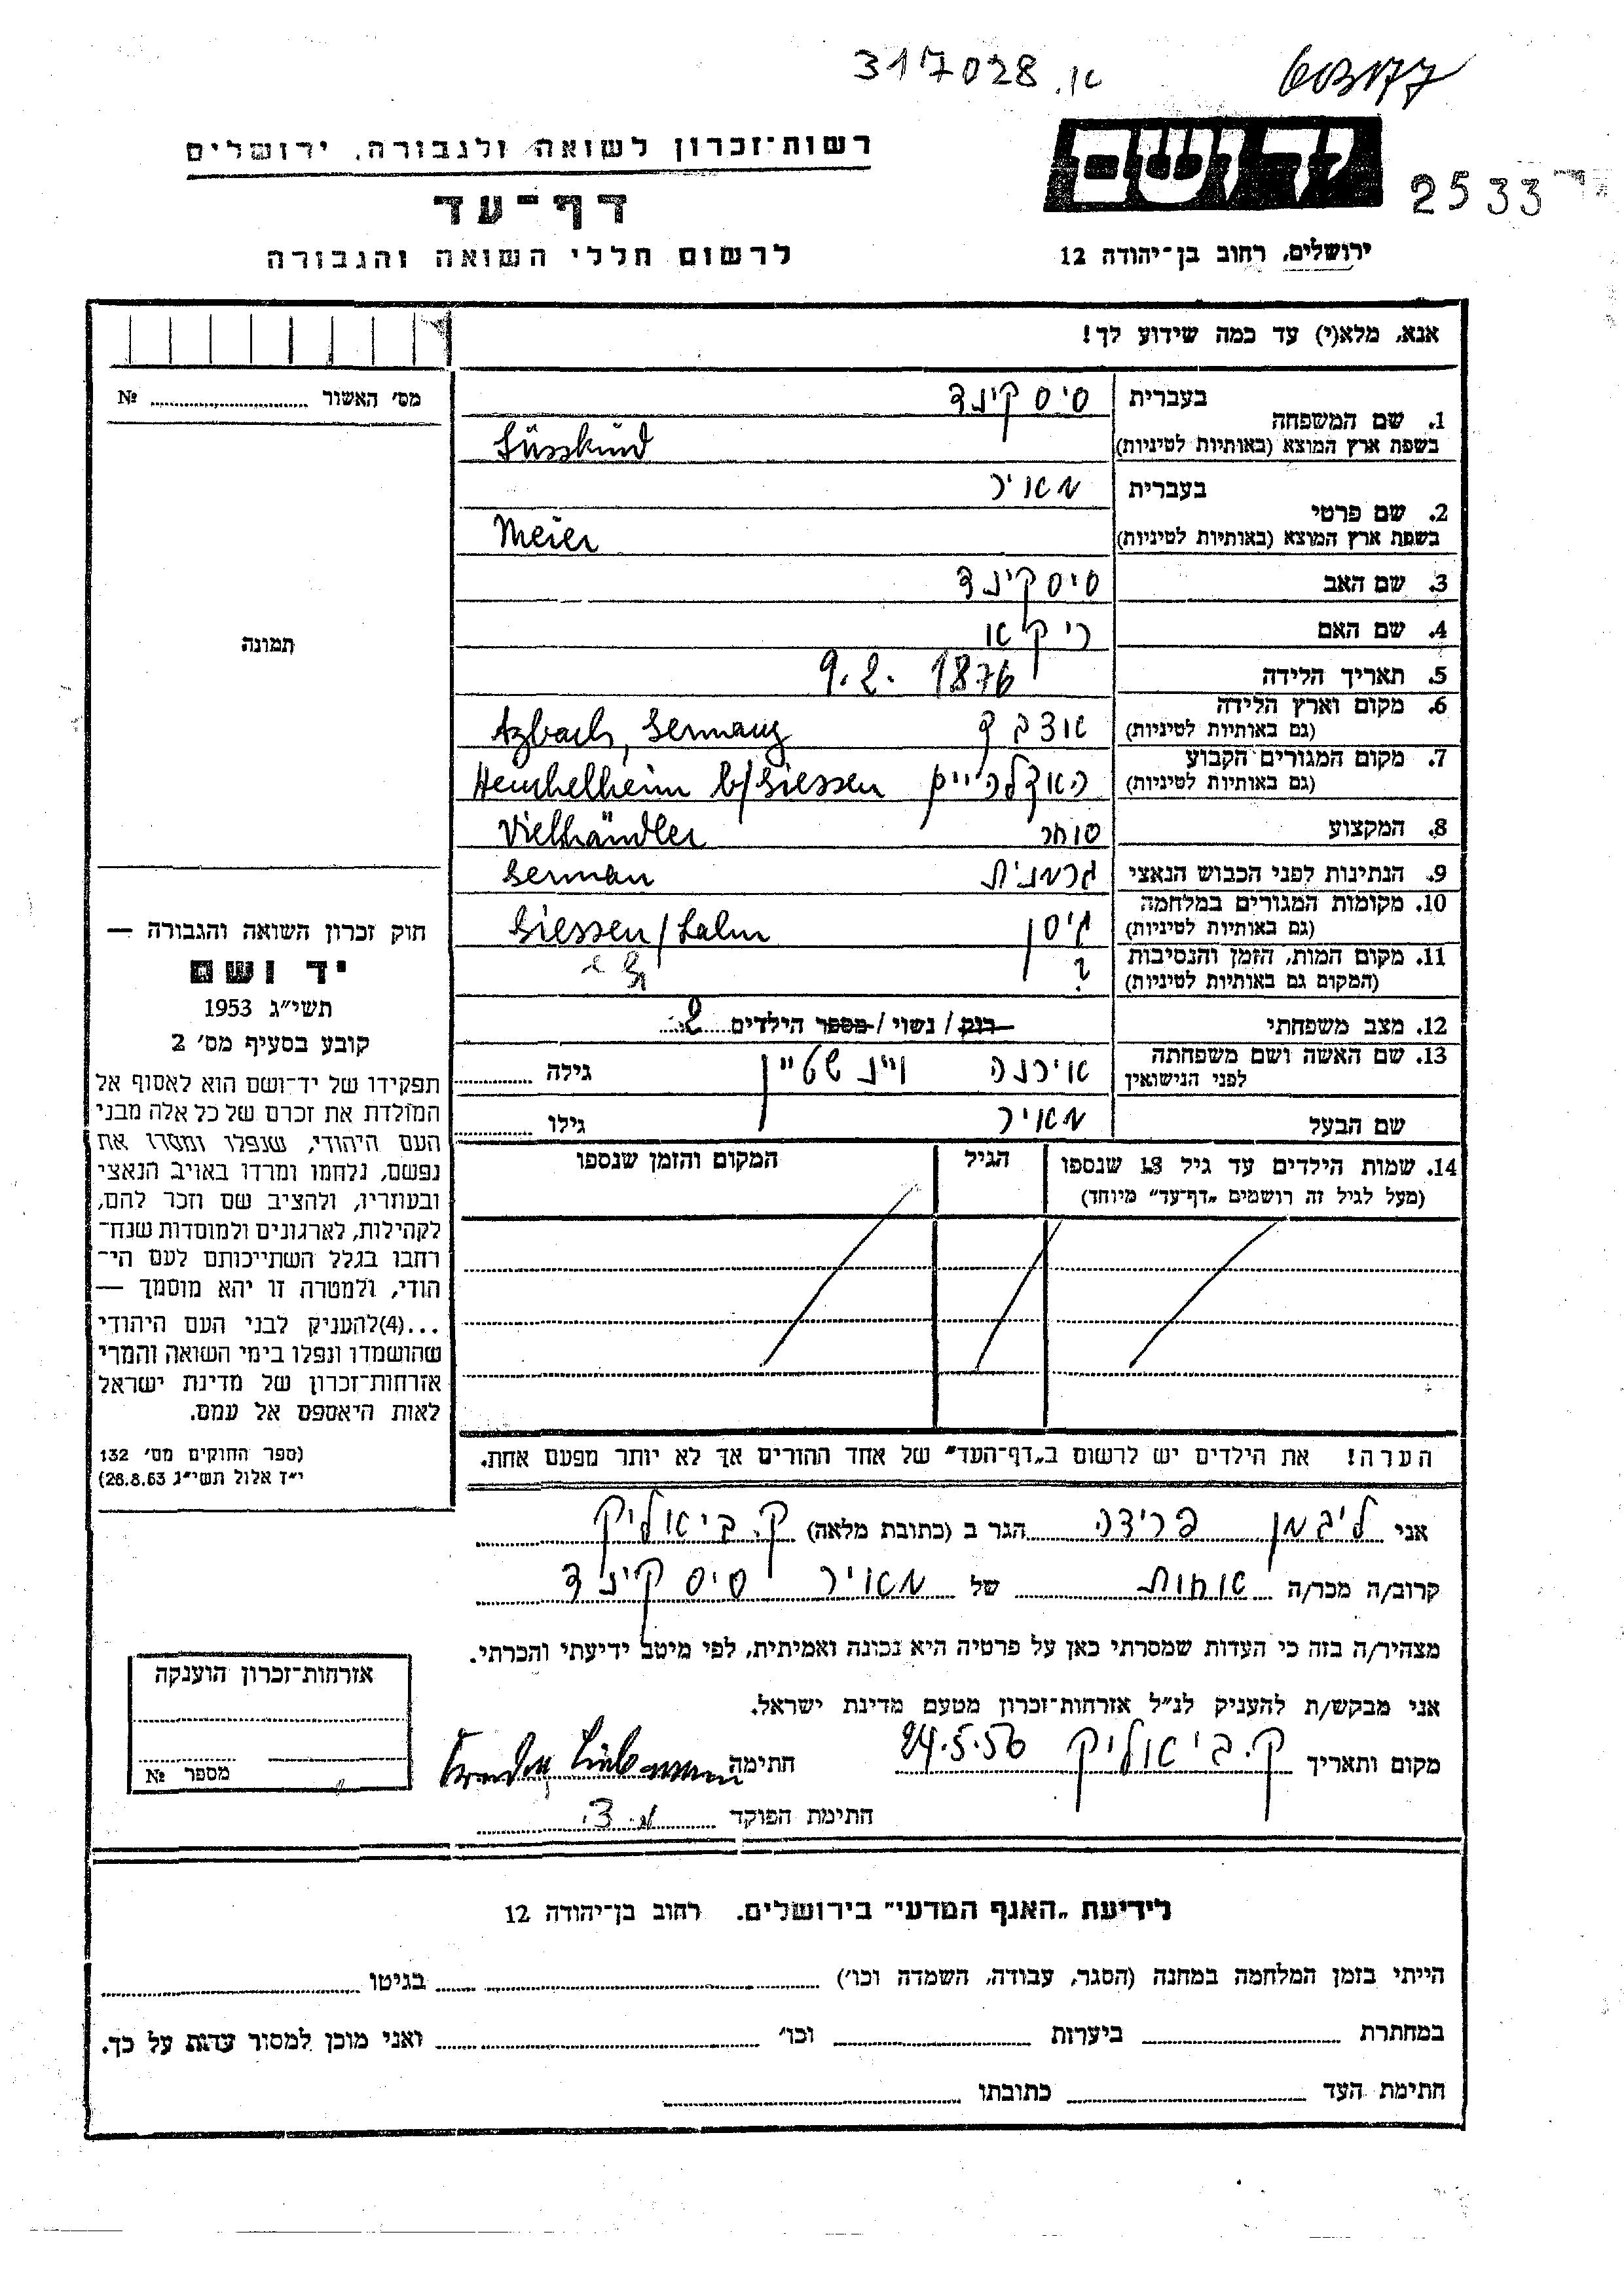 317028 .או 603177
רשות־זכרון לשואה ולגבורה, ירושלים
יד ושם
2533
דף־עד
לרשום חללי השואה והגבורה
ירושלים, רחוב בן־יהודה 12
אנא, מלא(י) עד כמה שידוע לך!
מס' האשור ........ №
1. שם המשפחה
בעברית סיסקינד
בשפת ארץ המוצא (באותיות לטיניות) Süsskind
2. שם פרטי
בעברית מאיר
בשפת ארץ המוצא (באותיות לטיניות) Meier
3. שם האב סיסקינד
4. שם האם ריקא
5. תאריך הלידה 9.2. 1876
6. מקום וארץ הלידה
(גם באותיות לטיניות) אצבך Azbach, Germany
7. מקום המגורים הקבוע
(גם באותיות לטיניות) Heuchelheim b/Giessen
8. המקצוע סוחר Viehhändler
9. הנתינות לפני הכבוש הנאצי גרמנית German
10. מקומות המגורים במלחמה
(גם באותיות לטיניות) גיסן Giessen/Lahn
11. מקום המות, הזמן והנסיבות
(המקום גם באותיות לטיניות) ?
12. מצב משפחתי רווק / נשוי / מספר הילדים 2
13. שם האשה ושם משפחתה
לפני הנישואין אירנה ויינשטיין גילה ........
שם הבעל מאיר גילו ........
14. שמות הילדים עד גיל 18 שנספו
(מעל לגיל זה רושמים „דף־עד" מיוחד)
הגיל
המקום והזמן שנספו
הערה! את הילדים יש לרשום ב„דף־העד" של אחד ההורים אך לא יותר מפעם אחת.
תמונה
חוק זכרון השואה והגבורה —
יד ושם
תשי"ג 1953
קובע בסעיף מס' 2
תפקידו של יד־ושם הוא לאסוף אל
המולדת את זכרם של כל אלה מבני
העם היהודי, שנפלו ומסרו את
נפשם, נלחמו ומרדו באויב הנאצי
ובעוזריו, ולהציב שם וזכר להם,
לקהילות, לארגונים ולמוסדות שנח־
רבו בגלל השתייכותם לעם הי־
הודי, ולמטרה זו יהא מוסמך —
...(4) להעניק לבני העם היהודי
שהושמדו ונפלו בימי השואה והמרי
אזרחות־זכרון של מדינת ישראל
לאות היאספם אל עמם.
(ספר החוקים מס' 132
י"ז אלול תשי"ג 28.8.53)
אני ליבמן פרידה הגר ב (כתובת מלאה) ק. ביאליק
קרוב/ה מכר/ה אחות של מאיר סיסקינד
מצהיר/ה בזה כי העדות שמסרתי כאן על פרטיה היא נכונה ואמיתית, לפי מיטב ידיעתי והכרתי.
אני מבקש/ת להעניק לנ"ל אזרחות־זכרון מטעם מדינת ישראל.
מקום ותאריך ק. ביאליק 24.5.56 חתימה
חתימת הפוקד
אזרחות־זכרון הוענקה
מספר №
לידיעת „האגף המדעי" בירושלים. רחוב בן־יהודה 12
הייתי בזמן המלחמה במחנה (הסגר, עבודה, השמדה וכו') ........ בגיטו ........
במחתרת ........ ביערות ........ וכו' ........ ואני מוכן למסור עדות על כך.
חתימת העד ........ כתובתו ........